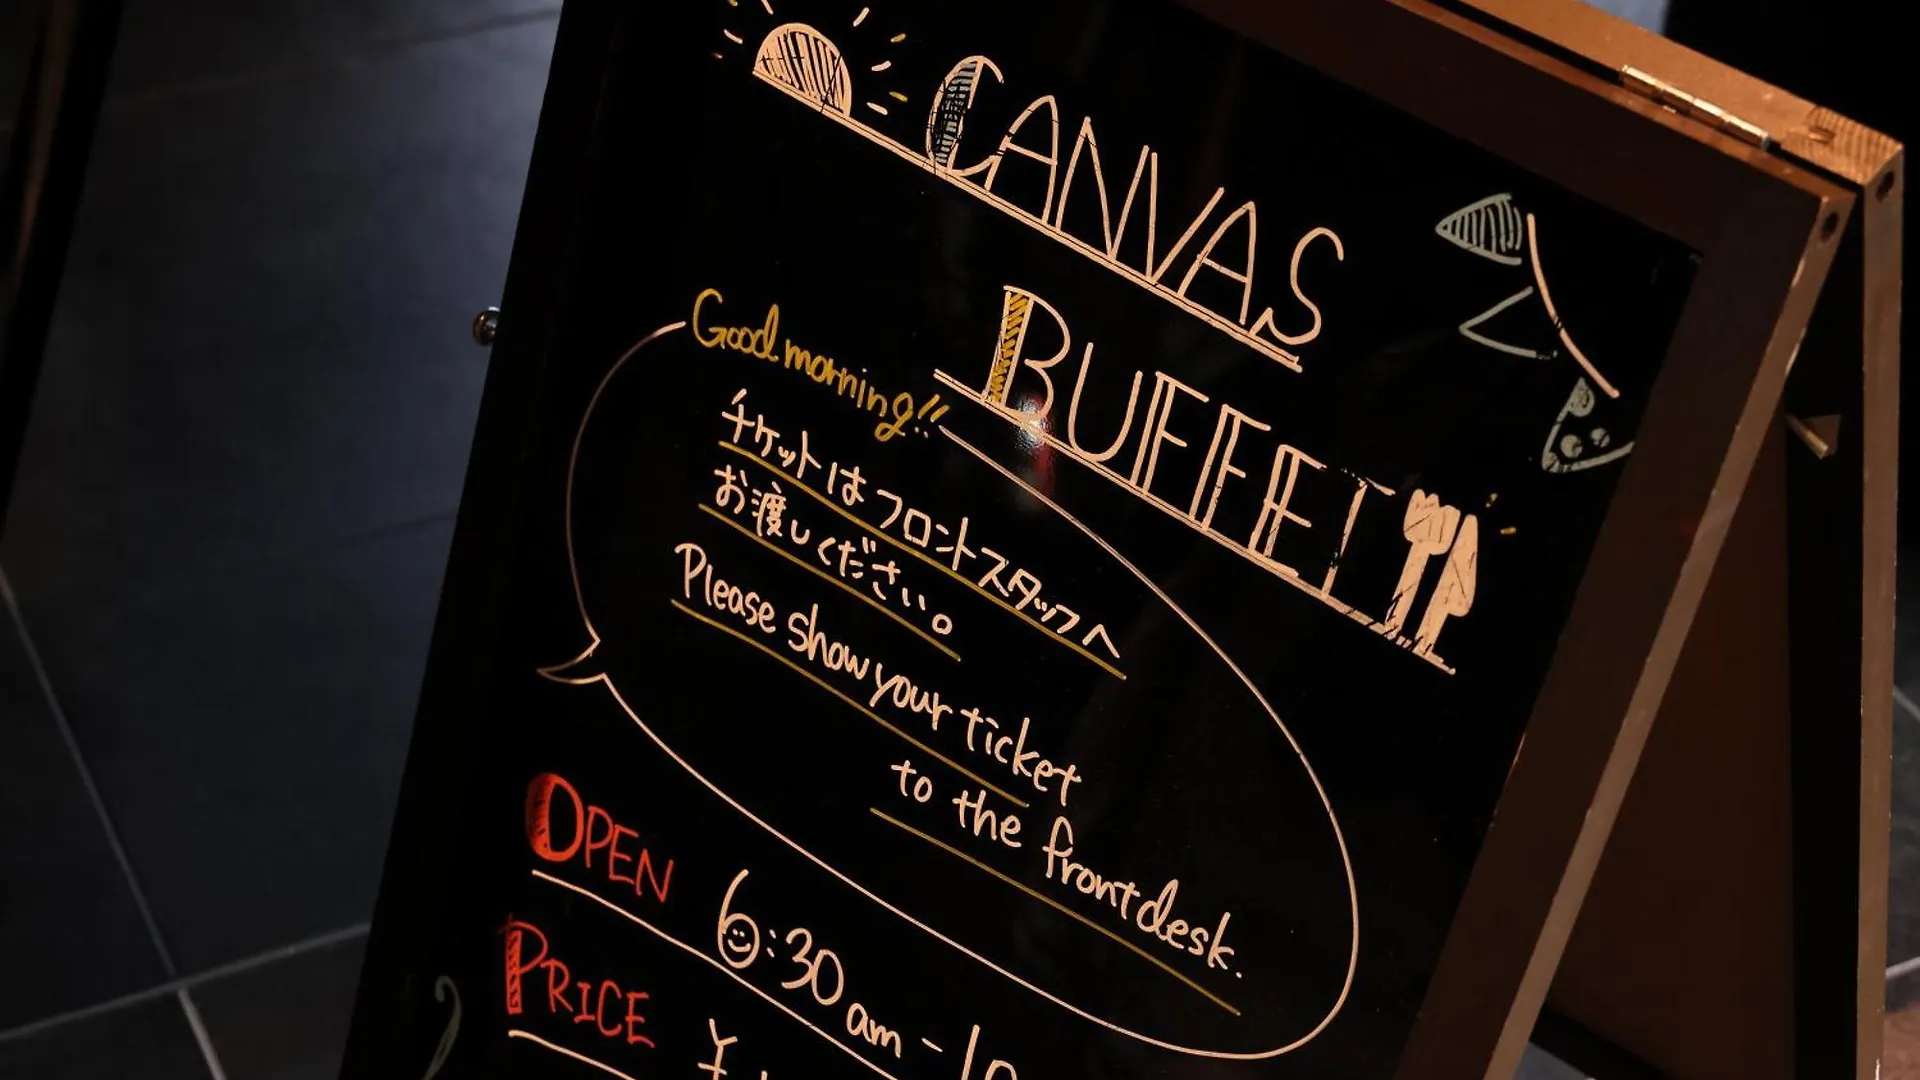 CANVAS
BUFFET
Good morning!!
チケットはフロントスタッフへ
お渡しください。
Please show your ticket
to the front desk.
OPEN 6:30 am - 10
PRICE ¥